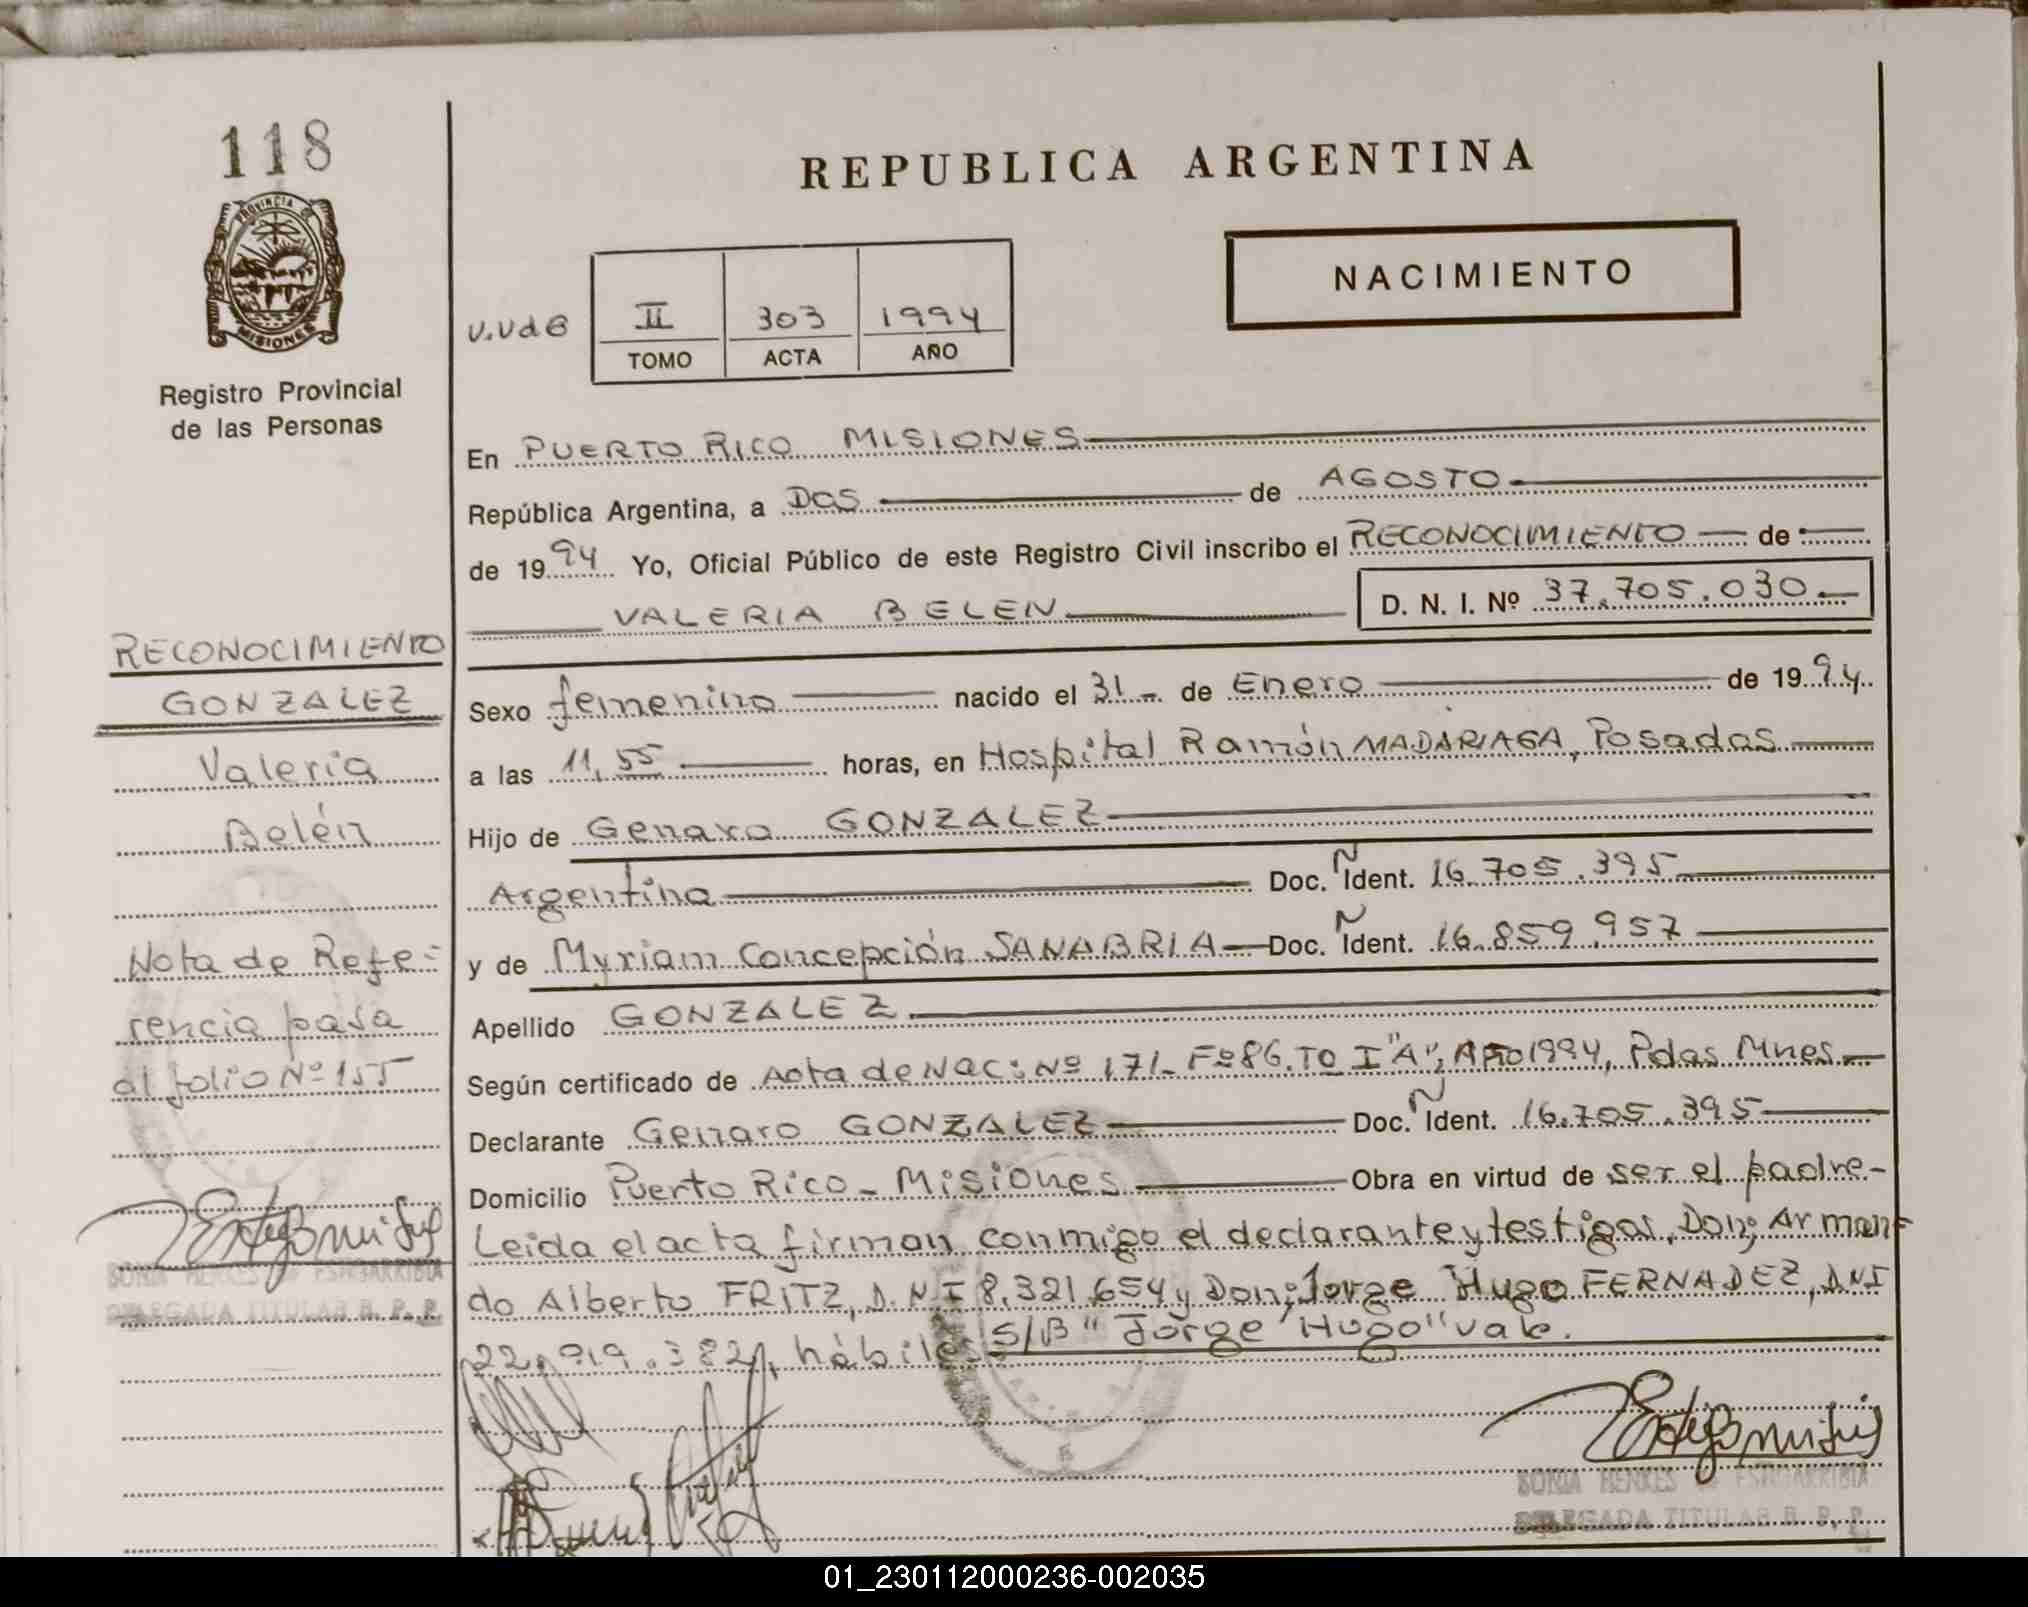 118
PROVINCIA DE
MISIONES
Registro Provincial
de las Personas
RECONOCIMIENTO
GONZALEZ
Valeria
Belén
Nota de Refe-
rencia pasa
al folio Nº 15T
SONIA HENKES ESTIGARRIBIA
DELEGADA TITULAR R. P. P.
REPUBLICA ARGENTINA
NACIMIENTO
V.VdG
II 303 1994
TOMO ACTA AÑO
En PUERTO RICO MISIONES
República Argentina, a DOS de AGOSTO
de 1994 Yo, Oficial Público de este Registro Civil inscribo el RECONOCIMIENTO de
VALERIA BELEN D. N. I. Nº 37.705.030.
Sexo femenino nacido el 31 de Enero de 1994.
a las 11,55 horas, en Hospital Ramón MADARIAGA, Posadas
Hijo de Genaro GONZALEZ
Argentina Doc. Ñ Ident. 16.705.395
y de Myriam Concepción SANABRIA Doc. Ñ Ident. 16.859.957
Apellido GONZALEZ
Según certificado de Acta de Nac: Nº 171- Fº 86. Tº I "A", Año 1994, Pdas Mnes.
Declarante Genaro GONZALEZ Doc. Ñ Ident. 16.705.395
Domicilio Puerto Rico - Misiones Obra en virtud de ser el padre-
Leida el acta firman conmigo el declarante y testigos, Don; Arman-
do Alberto FRITZ, D.N.I 8.321.654 y Don; Jorge Hugo FERNADEZ, DNI
22.919.382, hàbiles S/B "Jorge Hugo" vale.
SONIA HENKES ESTIGARRIBIA
DELEGADA TITULAR R. P. P.
01_230112000236-002035